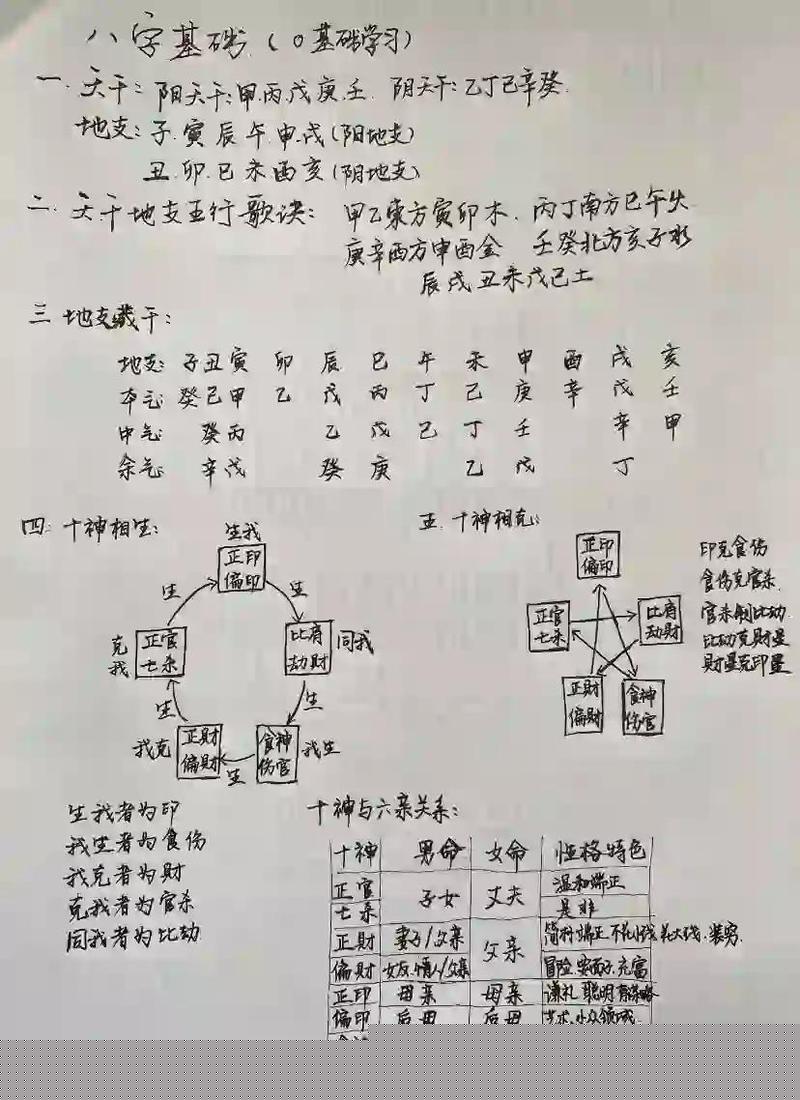 八字基础（0基础学习）
一.天干：阳天干:甲.丙.戊庚.壬. 阴天干:乙丁己辛癸.
地支：子.寅辰午.申.戌(阳地支)
丑.卯.巳未酉亥(阴地支)
二.天干地支五行歌诀： 甲乙東方寅卯木. 丙丁南方巳午火
庚辛西方申酉金 壬癸北方亥子水
辰戌丑未戊己土
三 地支藏干：
地支: 子丑寅 卯 辰 巳 午 未 申 酉 戌 亥
本气: 癸己甲 乙 戊 丙 丁 己 庚 辛 戊 壬
中气: 癸丙 乙 戊 己 丁 壬 辛 甲
余气: 辛戊 癸 庚 乙 戊 丁
四:十神相生:
生我
正印
偏印
生
生
克我
正官
七杀
比肩
劫财
同我
生
生
我克
正财
偏财
生
食神
伤官
我生
五.十神相克:
正印
偏印
正官
七杀
比肩
劫财
正财
偏财
食神
伤官
印克食伤
食伤克官杀.
官杀制比劫.
比劫克财星
财星克印星
生我者为印
我生者为食伤
我克者为财
克我者为官杀
同我者为比劫
十神与六亲关系:
十神 男命 女命 性格特色
正官 子女 丈夫 温和端正
七杀 是非
正财 妻子/父亲 父亲
偏财 女友.情人/父亲 冒险.要面子.充富
正印 母亲 母亲 谦礼 聪明
偏印 后母 后母 艺术.小众领域